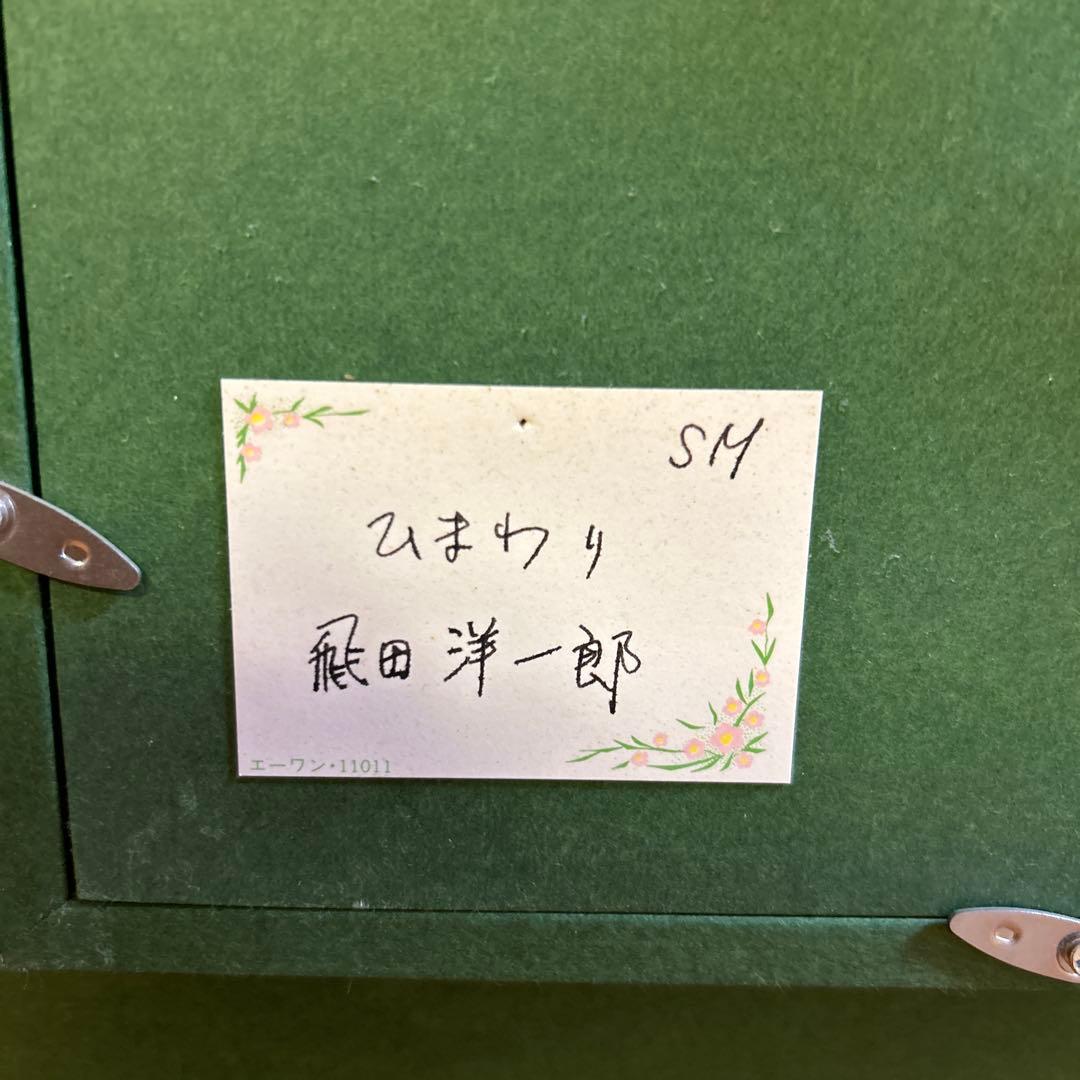 SM
ひまわり
飛田 洋一郎
エーワン・11011